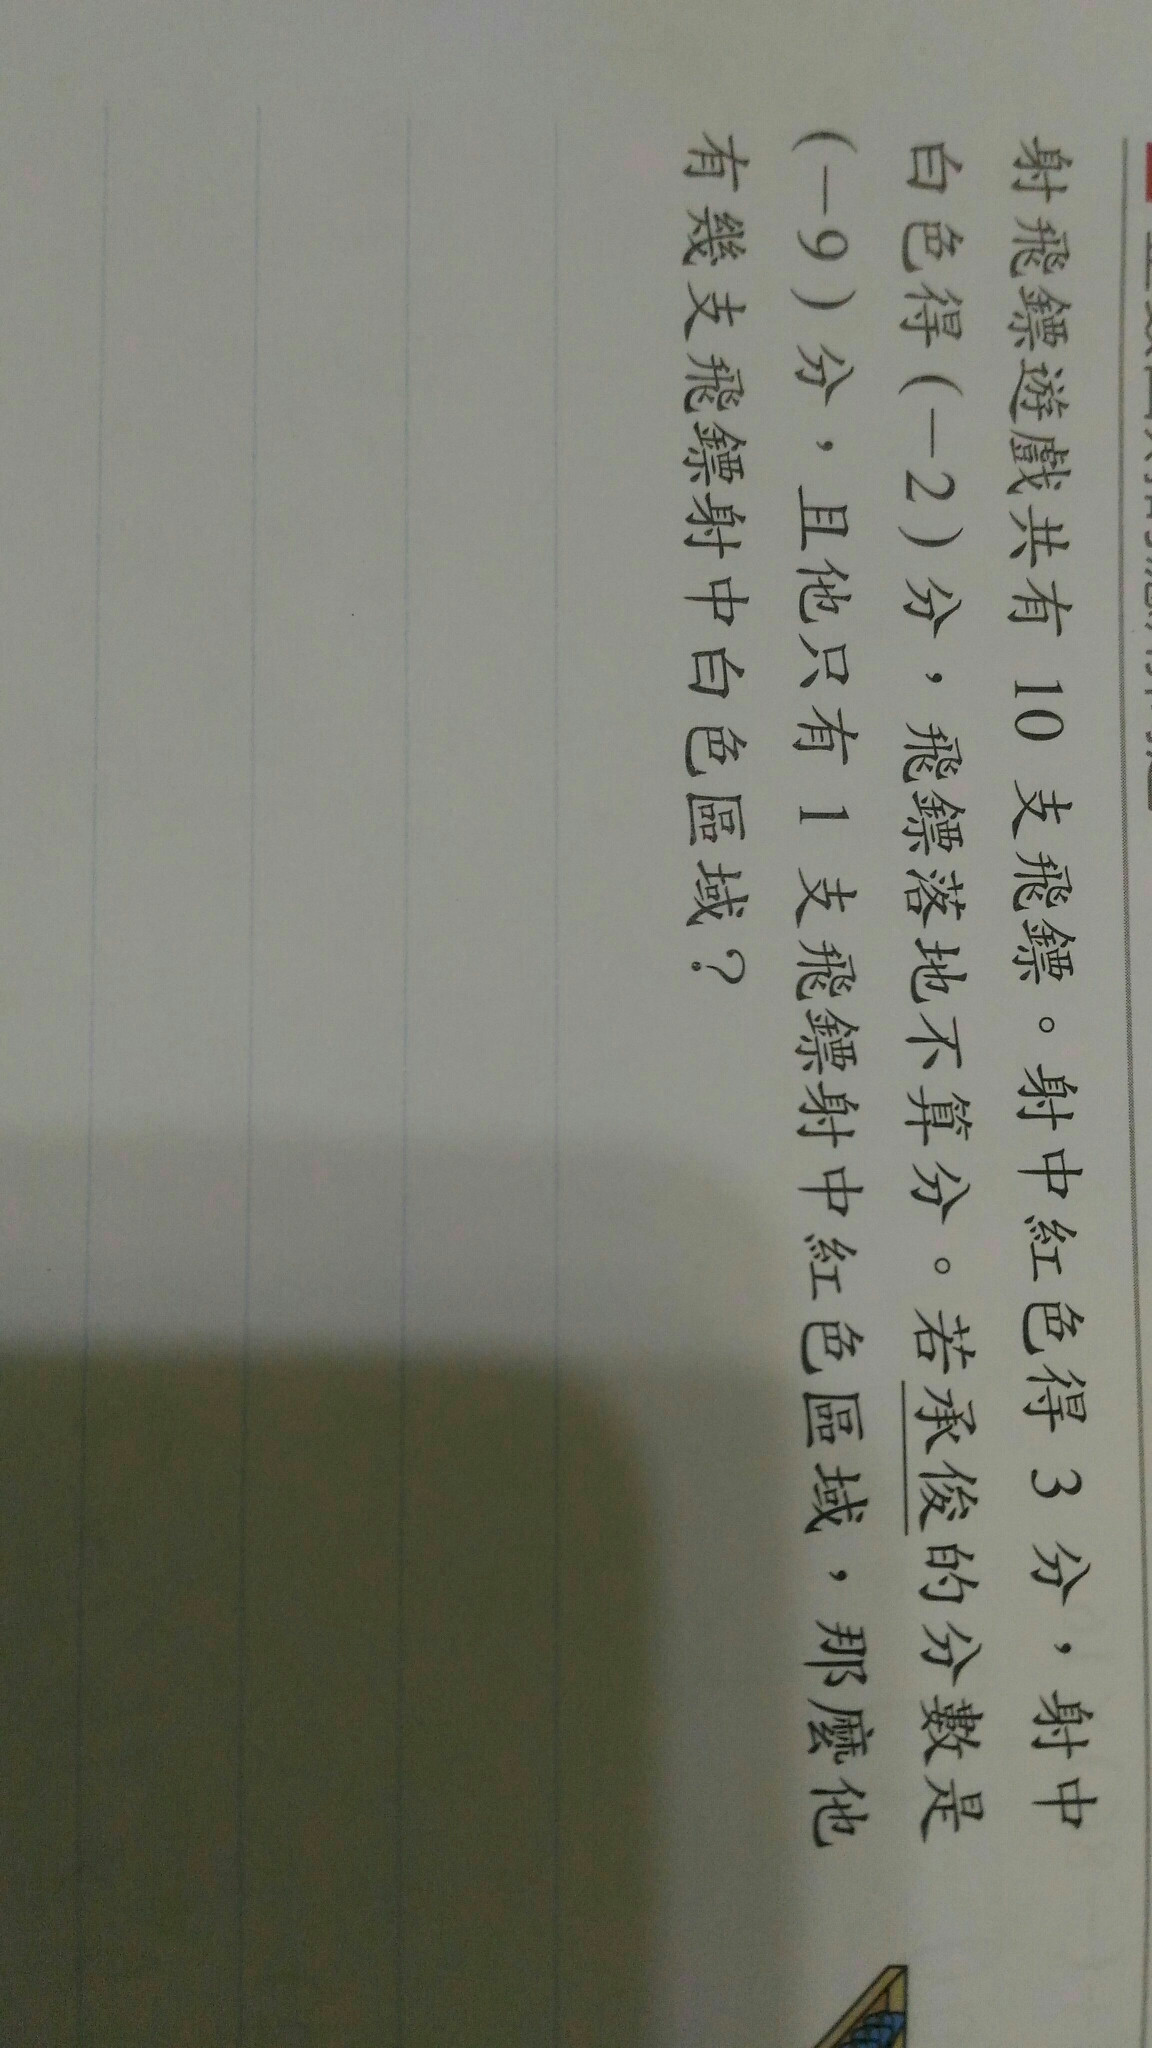 射飛鏢遊戲共有 10 支飛鏢。射中紅色得 3 分，射中
白色得(-2)分，飛鏢落地不算分。若承俊的分數是
(-9)分，且他只有 1 支飛鏢射中紅色區域，那麼他
有幾支飛鏢射中白色區域？